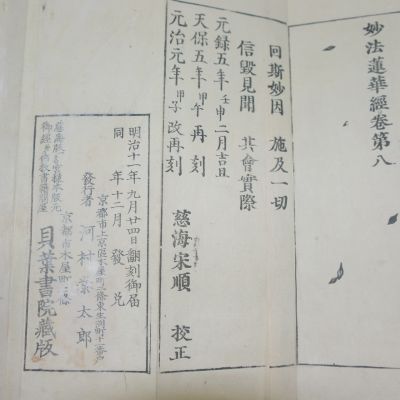 妙法蓮華經卷第八
回斯妙因 施及一切
信毀見聞 共會實際
元録五年壬申二月吉旦
天保五年甲午再刻
元治元年甲子改再刻
慈海宋順 校正
明治十一年九月廿四日翻刻御届
同 年十二月 發兌
發行者 河村景太郎
京都市木屋町二條
貝葉書院藏版